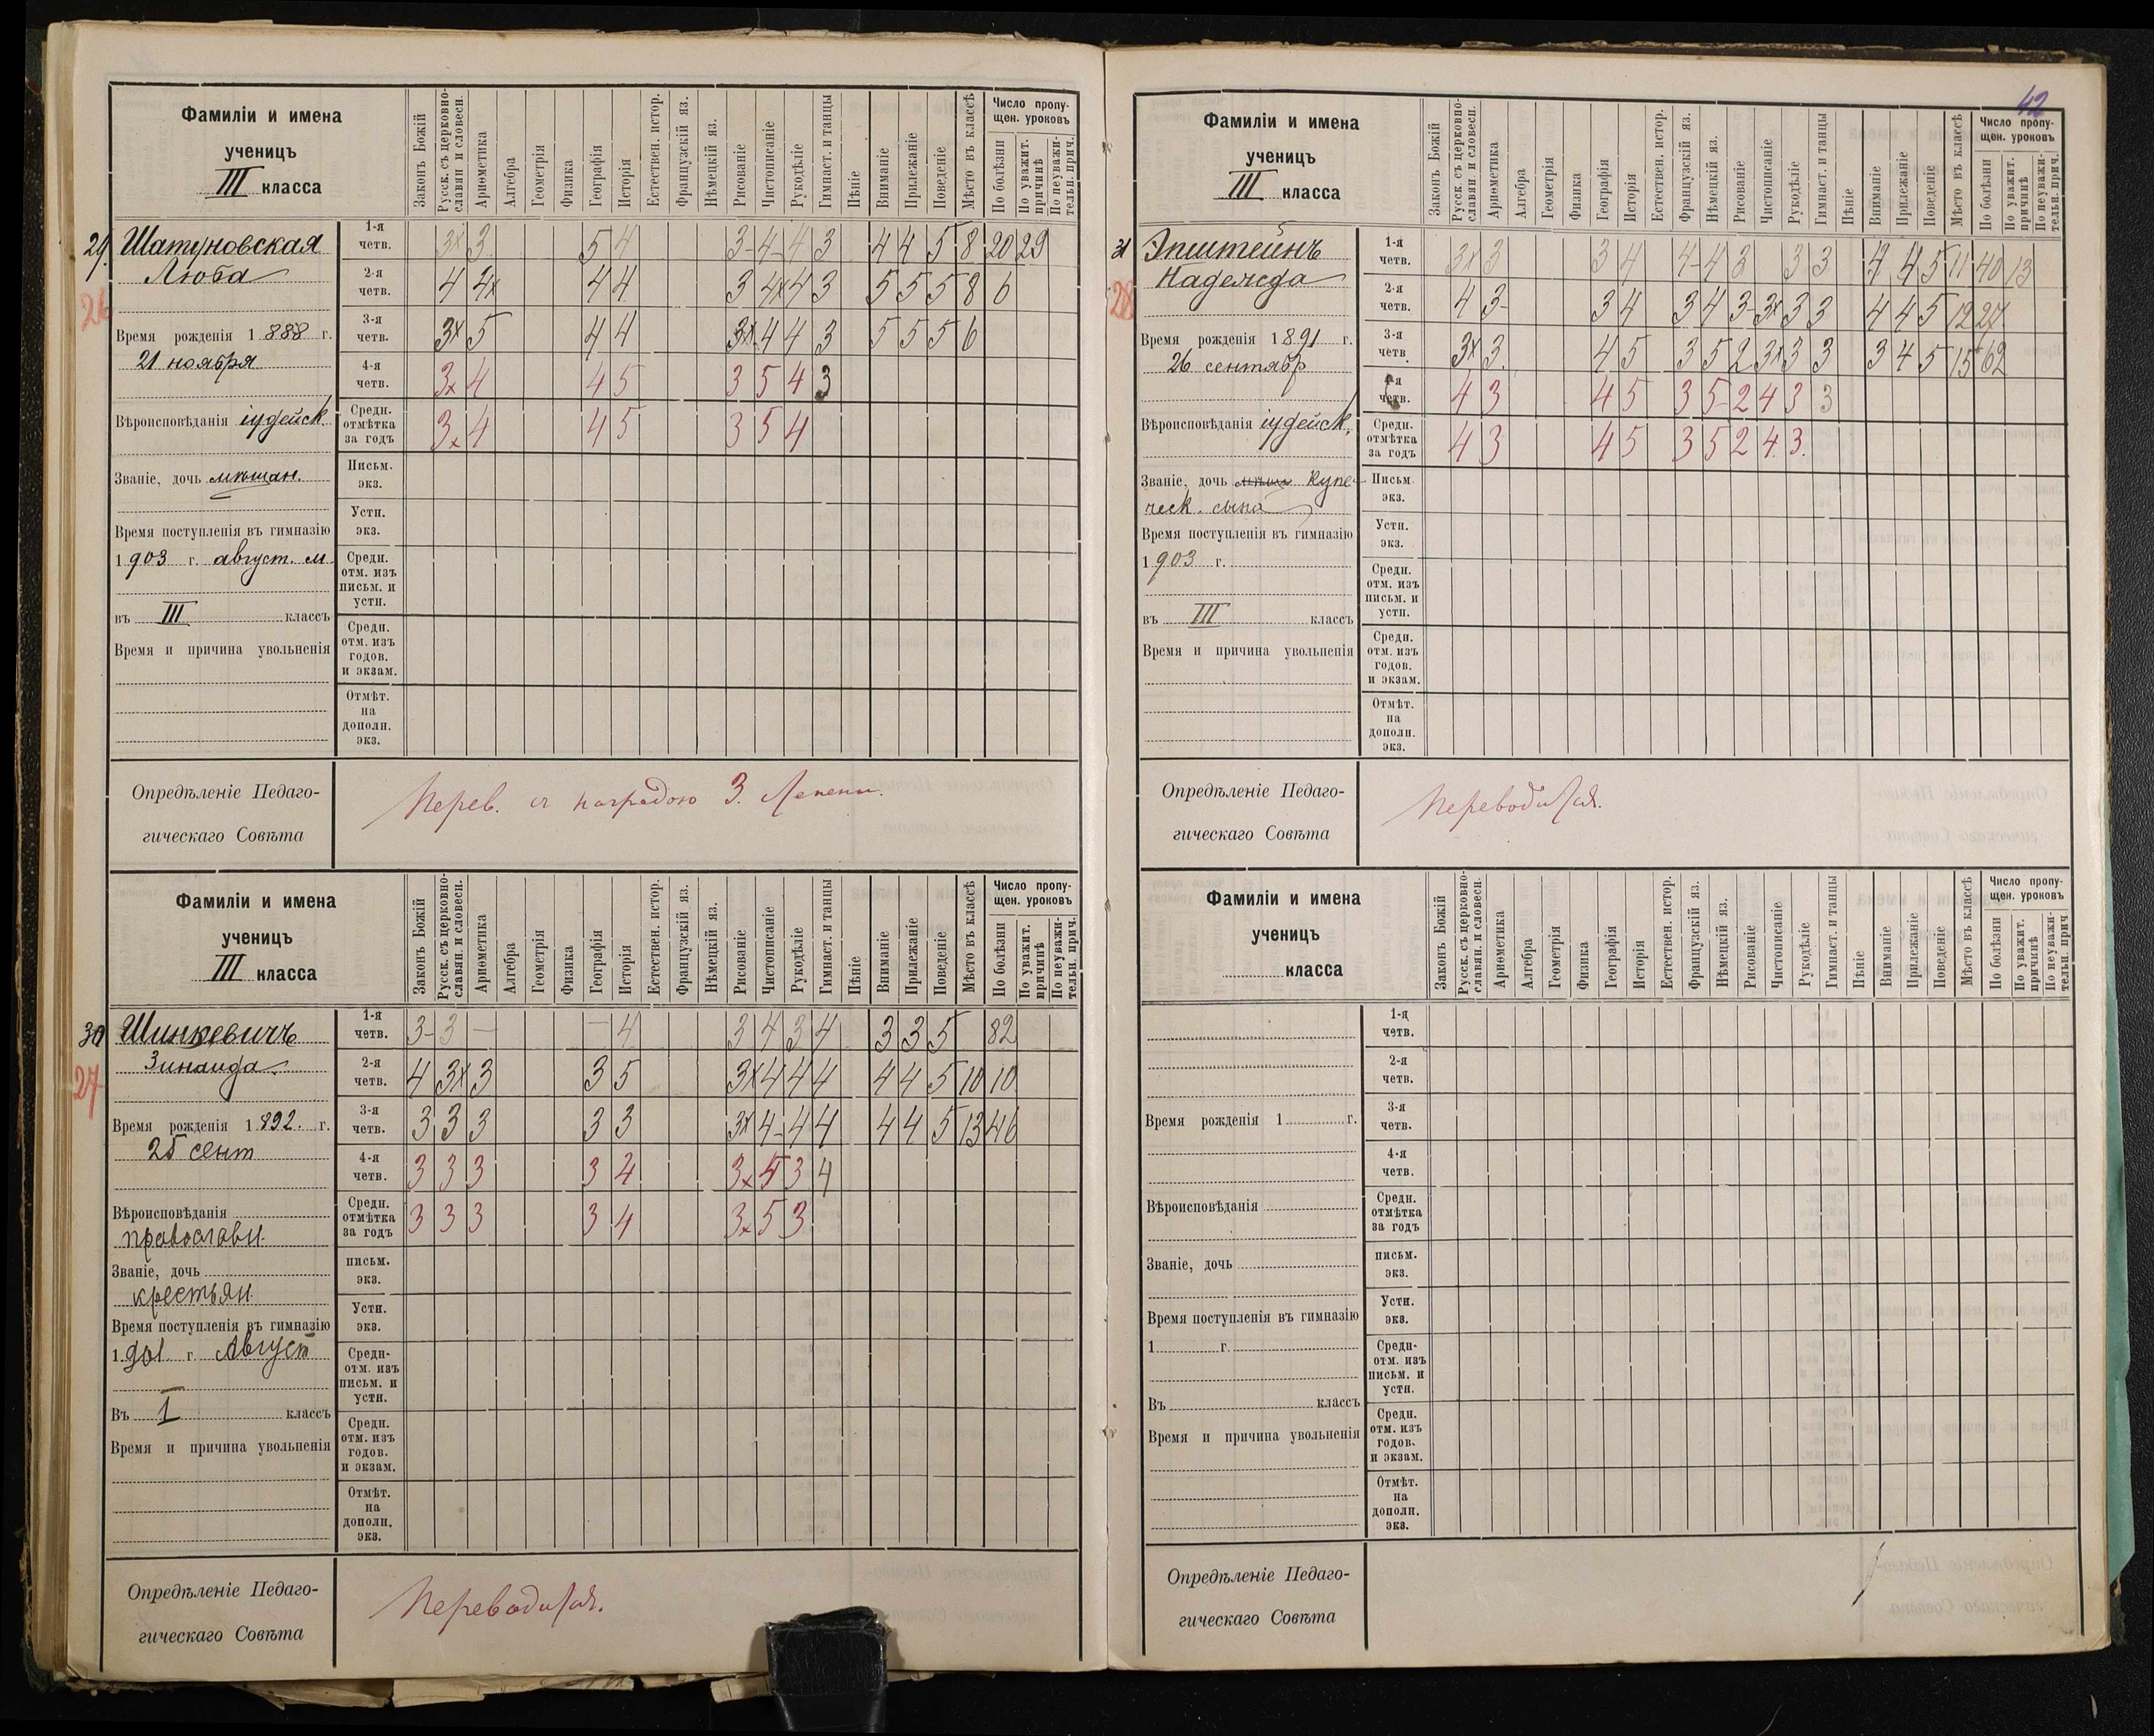 42
Фамиліи и имена
ученицъ
III класса
Законъ Божій
Русск. съ церковно-славян. и словесн.
Ариѳметика
Алгебра
Геометрія
Физика
Географія
Исторія
Естествен. истор.
Французскій яз.
Нѣмецкій яз.
Рисованіе
Чистописаніе
Рукодѣліе
Гимнаст. и танцы
Пѣніе
Вниманіе
Прилежаніе
Поведеніе
Мѣсто въ классѣ
Число пропу-
щен. уроковъ
По болѣзни
По уважит. причинѣ
По неуважи-тельн. прич.
29. Шатуновская
Люба
26
Время рожденія 1888 г.
21 ноября
Вѣроисповѣданія іудейск.
Званіе, дочь мѣщан.
Время поступленія въ гимназію
1903 г. август. м.
въ III классъ
Время и причина увольненія
1-я четв. 3x 3 5 4 3- 4- 4 3 4 4 5 8 20 29
2-я четв. 4 4x 4 4 3 4x 4 3 5 5 5 8 6
3-я четв. 3x 5 4 4 3x 4 4 3 5 5 5 6
4-я четв. 3x 4 4 5 3 5 4 3
Средн. отмѣтка за годъ 3x 4 4 5 3 5 4
Письм. экз.
Устн. экз.
Средн. отм. изъ письм. и устн.
Средн. отм. изъ годов. и экзам.
Отмѣт. на дополн. экз.
Опредѣленіе Педаго-
гическаго Совѣта
Перев. съ наградою 3. степени.
Фамиліи и имена
ученицъ
III класса
Законъ Божій
Русск. съ церковно-славян. и словесн.
Ариѳметика
Алгебра
Геометрія
Физика
Географія
Исторія
Естествен. истор.
Французскій яз.
Нѣмецкій яз.
Рисованіе
Чистописаніе
Рукодѣліе
Гимнаст. и танцы
Пѣніе
Вниманіе
Прилежаніе
Поведеніе
Мѣсто въ классѣ
Число пропу-
щен. уроковъ
По болѣзни
По уважит. причинѣ
По неуважи-тельн. прич.
30 Шинкевичъ
Зинаида
27
Время рожденія 1892. г.
25 сент
Вѣроисповѣданія
православн.
Званіе, дочь
крестьян.
Время поступленія въ гимназію
1901 г. Август
Въ I классъ
Время и причина увольненія
1-я четв. 3- 3 — — 4 3 4 3 4 3 3 5 82
2-я четв. 4 3x 3 3 5 3x 4 4 4 4 4 5 10 10
3-я четв. 3 3 3 3 3 3x 4- 4 4 4 4 5 13 46
4-я четв. 3 3 3 3 4 3x 5 3 4
Средн. отмѣтка за годъ 3 3 3 3 4 3x 5 3
письм. экз.
Устн. экз.
Средн- отм. изъ письм. и устн.
Средн. отм. изъ годов. и экзам.
Отмѣт. на дополн. экз.
Опредѣленіе Педаго-
гическаго Совѣта
Переводится.
Фамиліи и имена
ученицъ
III класса
Законъ Божій
Русск. съ церковно-славян и словесн.
Ариѳметика
Алгебра
Геометрія
Физика
Географія
Исторія
Естествен. истор.
Французскій яз.
Нѣмецкій яз.
Рисованіе
Чистописаніе
Рукодѣліе
Гимнаст. и танцы
Пѣніе
Вниманіе
Прилежаніе
Поведеніе
Мѣсто въ классѣ
Число пропу-
щен. уроковъ
По болѣзни
По уважит. причинѣ
По неуважи-тельн. прич.
31 Эпштейнъ
Надежда
28
Время рожденія 1891 г.
26 сентябр
Вѣроисповѣданія іудейск.
Званіе, дочь купе-
ческ. сына
Время поступленія въ гимназію
1903 г.
въ III классъ
Время и причина увольненія
1-я четв. 3x 3 3 4 4- 4 3 3 3 4 4 5 11 40 13
2-я четв. 4 3- 3 4 3 4 3- 3x 3 3 4 4 5 12 27
3-я четв. 3x 3 4 5 3 5 2 3x 3 3 3 4 5 15 62
4-я четв. 4 3 4 5 3 5- 2 4 3 3
Средн. отмѣтка за годъ 4 3 4 5 3 5 2 4. 3.
Письм экз.
Устн. экз.
Средн. отм. изъ письм. и устн.
Средн. отм. изъ годов. и экзам.
Отмѣт. на дополн. экз.
Опредѣленіе Педаго-
гическаго Совѣта
Переводится.
Фамиліи и имена
ученицъ
класса
Законъ Божій
Русск. съ церковно-славян. и словесн.
Ариѳметика
Алгебра
Геометрія
Физика
Географія
Исторія
Естествен. истор.
Французскій яз.
Нѣмецкій яз.
Рисованіе
Чистописаніе
Рукодѣліе
Гимнаст. и танцы
Пѣніе
Вниманіе
Прилежаніе
Поведеніе
Мѣсто въ классѣ
Число пропу-
щен. уроковъ
По болѣзни
По уважит. причинѣ
По неуважи-тельн. прич
Время рожденія 1 г.
Вѣроисповѣданія
Званіе, дочь
Время поступленія въ гимназію
1 г.
Въ классъ
Время и причина увольненія
1-я четв.
2-я четв.
3-я четв.
4-я четв.
Средн. отмѣтка за годъ
письм. экз.
Устн. экз.
Средн- отм. изъ письм. и устн.
Средн. отм. изъ годов. и экзам.
Отмѣт. на дополн. экз.
Опредѣленіе Педаго-
гическаго Совѣта